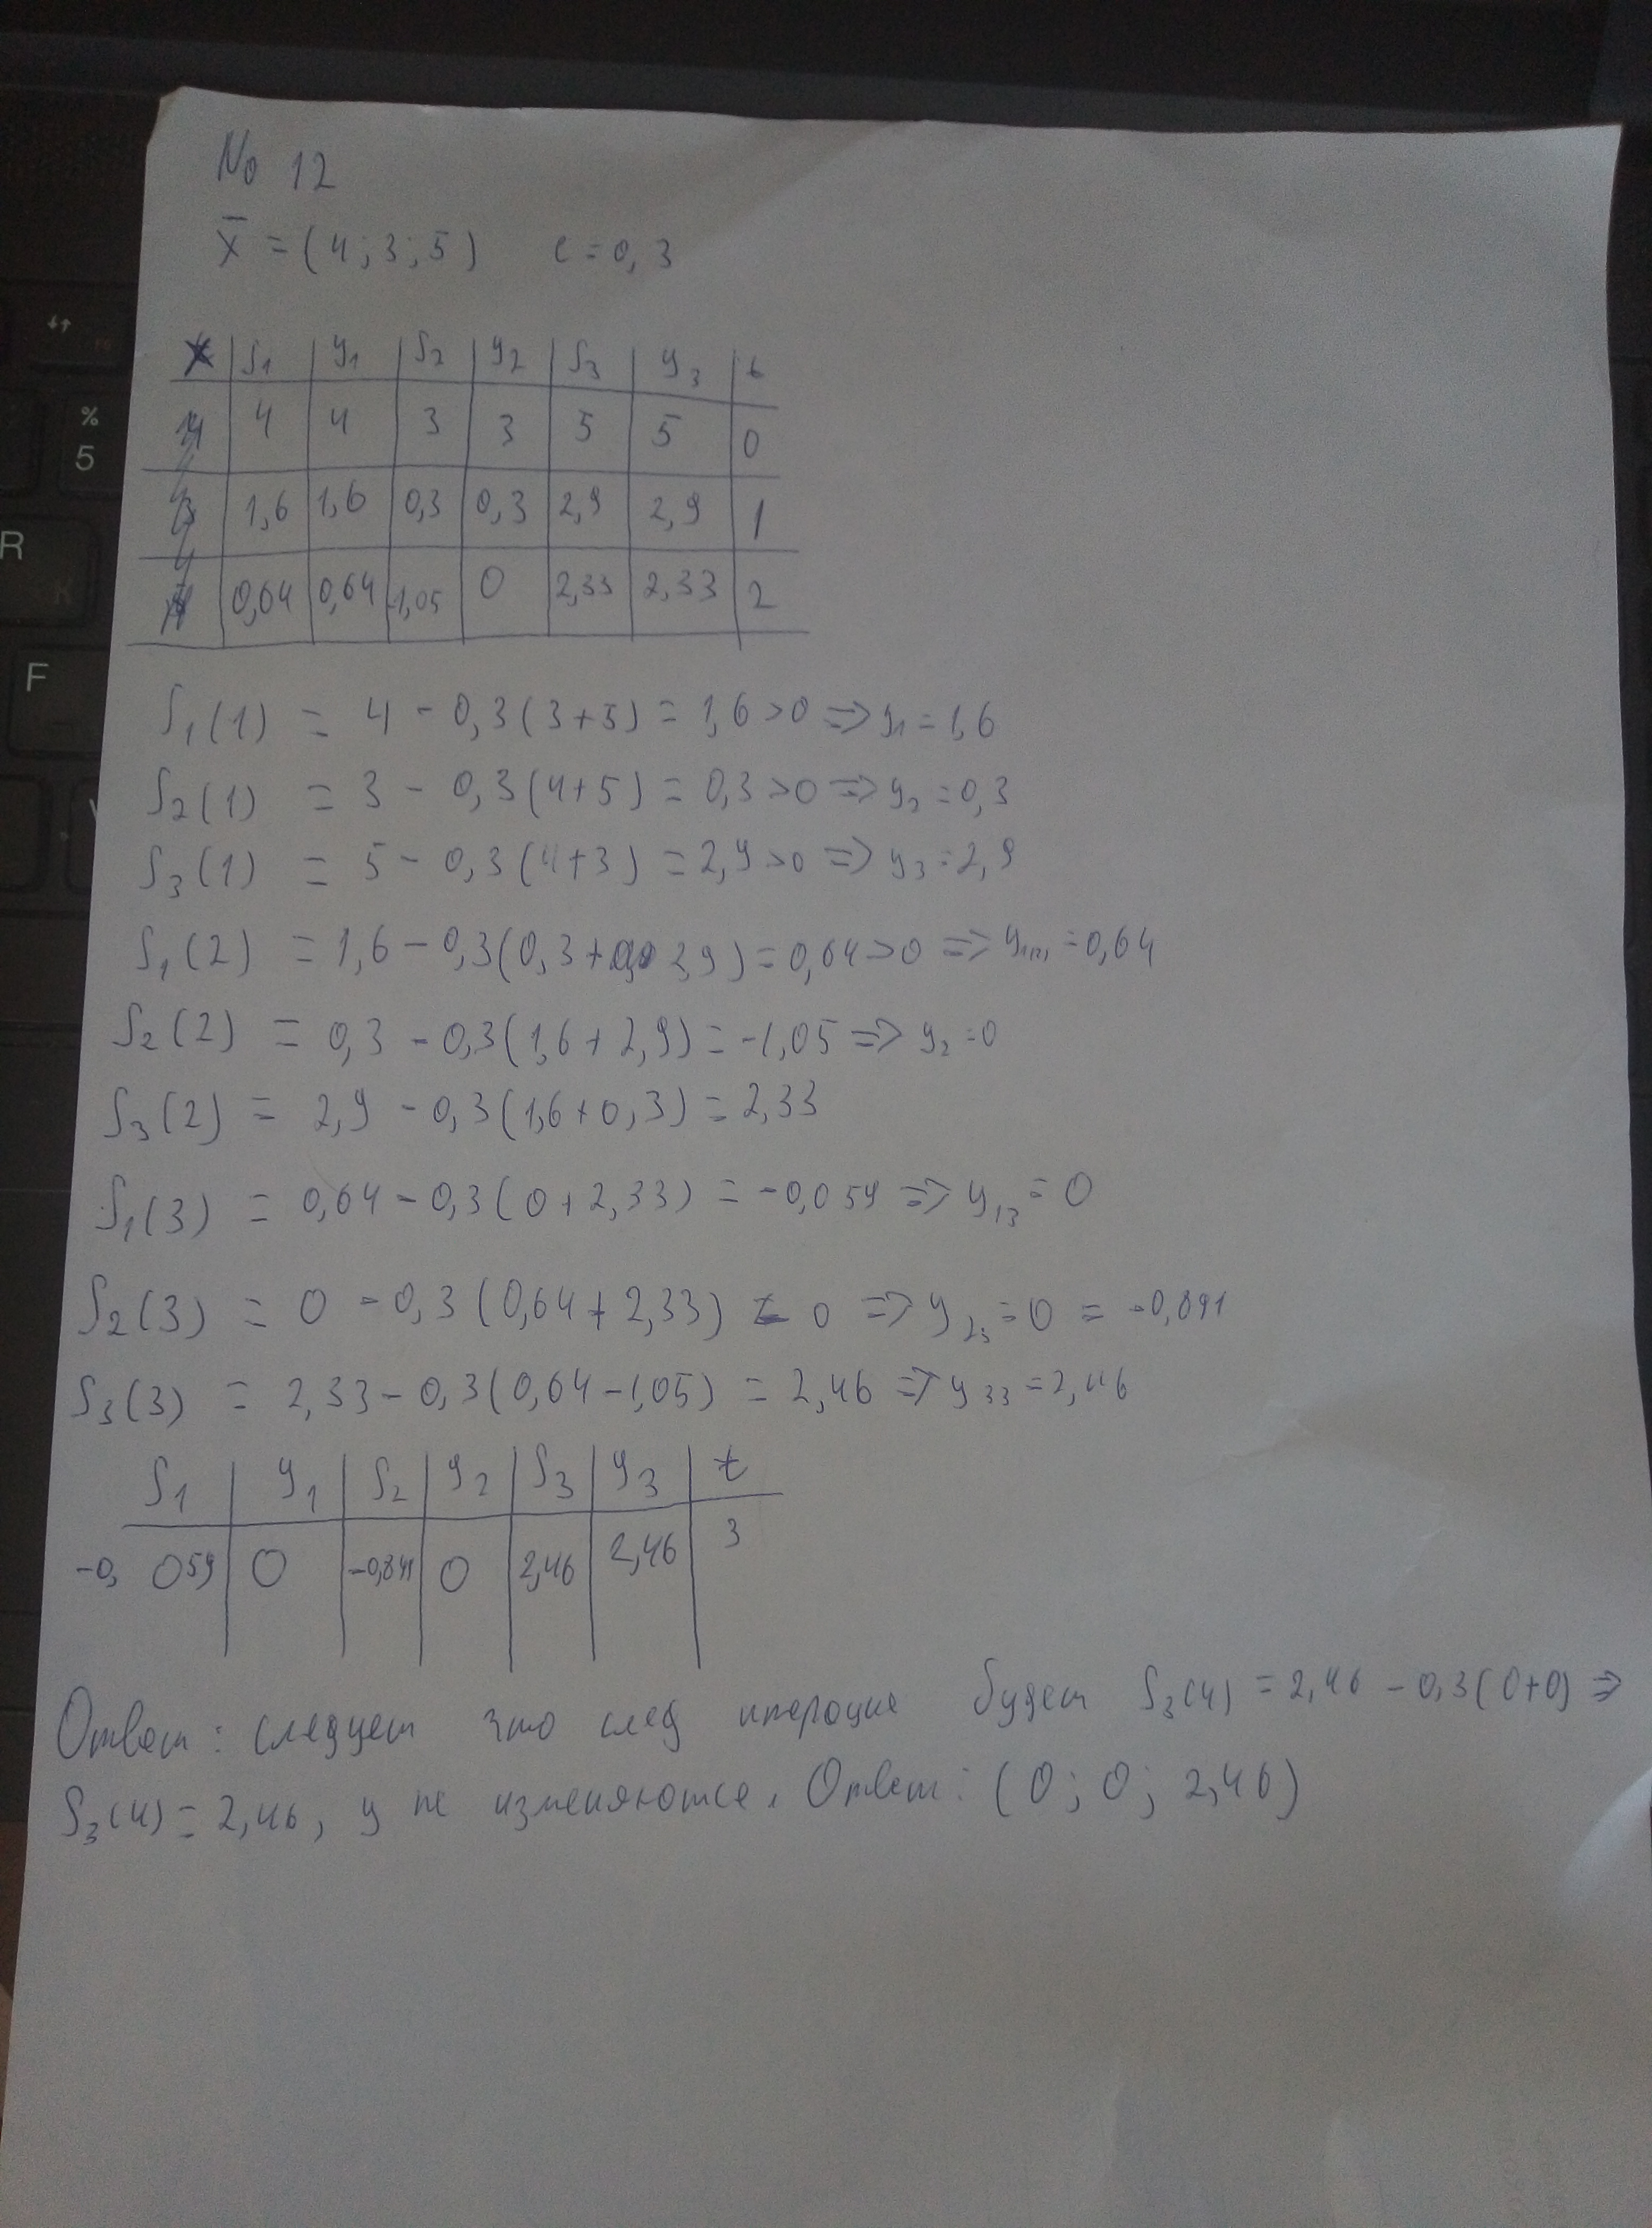 № 12
x̄ = (4; 3; 5) c = 0,3
S1 y1 S2 y2 S3 y3 t
4 4 3 3 5 5 0
1,6 1,6 0,3 0,3 2,9 2,9 1
0,64 0,64 -1,05 0 2,33 2,33 2
S1(1) = 4 - 0,3(3+5) = 1,6 >0 => y1 = 1,6
S2(1) = 3 - 0,3(4+5) = 0,3 >0 => y2 = 0,3
S3(1) = 5 - 0,3(4+3) = 2,9 >0 => y3 = 2,9
S1(2) = 1,6 - 0,3(0,3 + 2,9) = 0,64 >0 => = 0,64
S2(2) = 0,3 - 0,3(1,6 + 2,9) = -1,05 => y2 = 0
S3(2) = 2,9 - 0,3(1,6 + 0,3) = 2,33
S1(3) = 0,64 - 0,3(0 + 2,33) = -0,059 => y13 = 0
S2(3) = 0 - 0,3(0,64 + 2,33) 0 => y23 = 0 = -0,891
S3(3) = 2,33 - 0,3(0,64 - 1,05) = 2,46 => y33 = 2,46
S1 y1 S2 y2 S3 y3 t
-0,059 0 0 2,46 2,46 3
Ответ: следует что след итерация будет S3(4) = 2,46 - 0,3(0+0) =>
S3(4) = 2,46, y не изменяются. Ответ: (0; 0; 2,46)
%
5
R
K
F